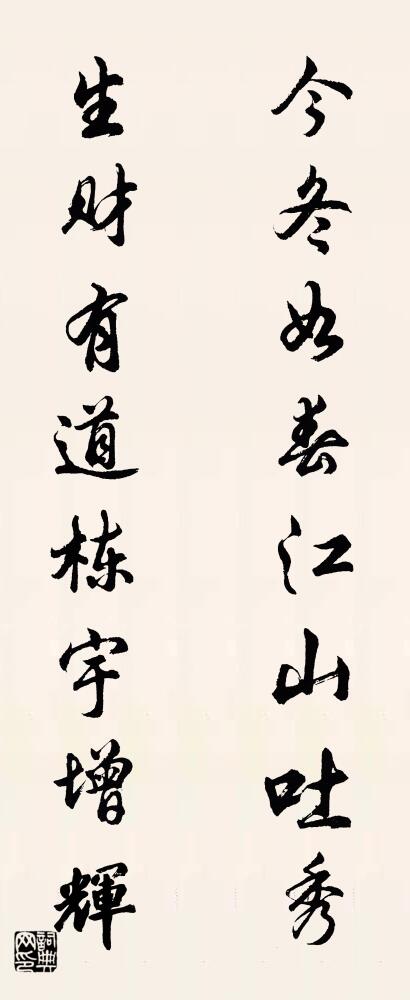 今冬如春江山吐秀
生财有道栋宇增輝
詞典网印